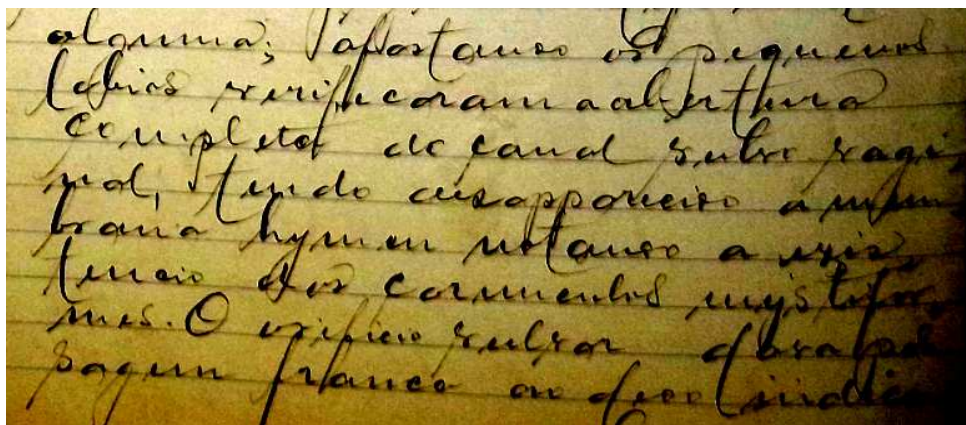 alguma; afastando os pequenos
labios verificaram a abertura
completa do canal vulvo vagi
nal, tendo desapparecido a mem
brana hymen notando a exis
tencia das carunculas myrtifor
mes. O orificio vulvar dava pas
sagem franca ao dedo indica